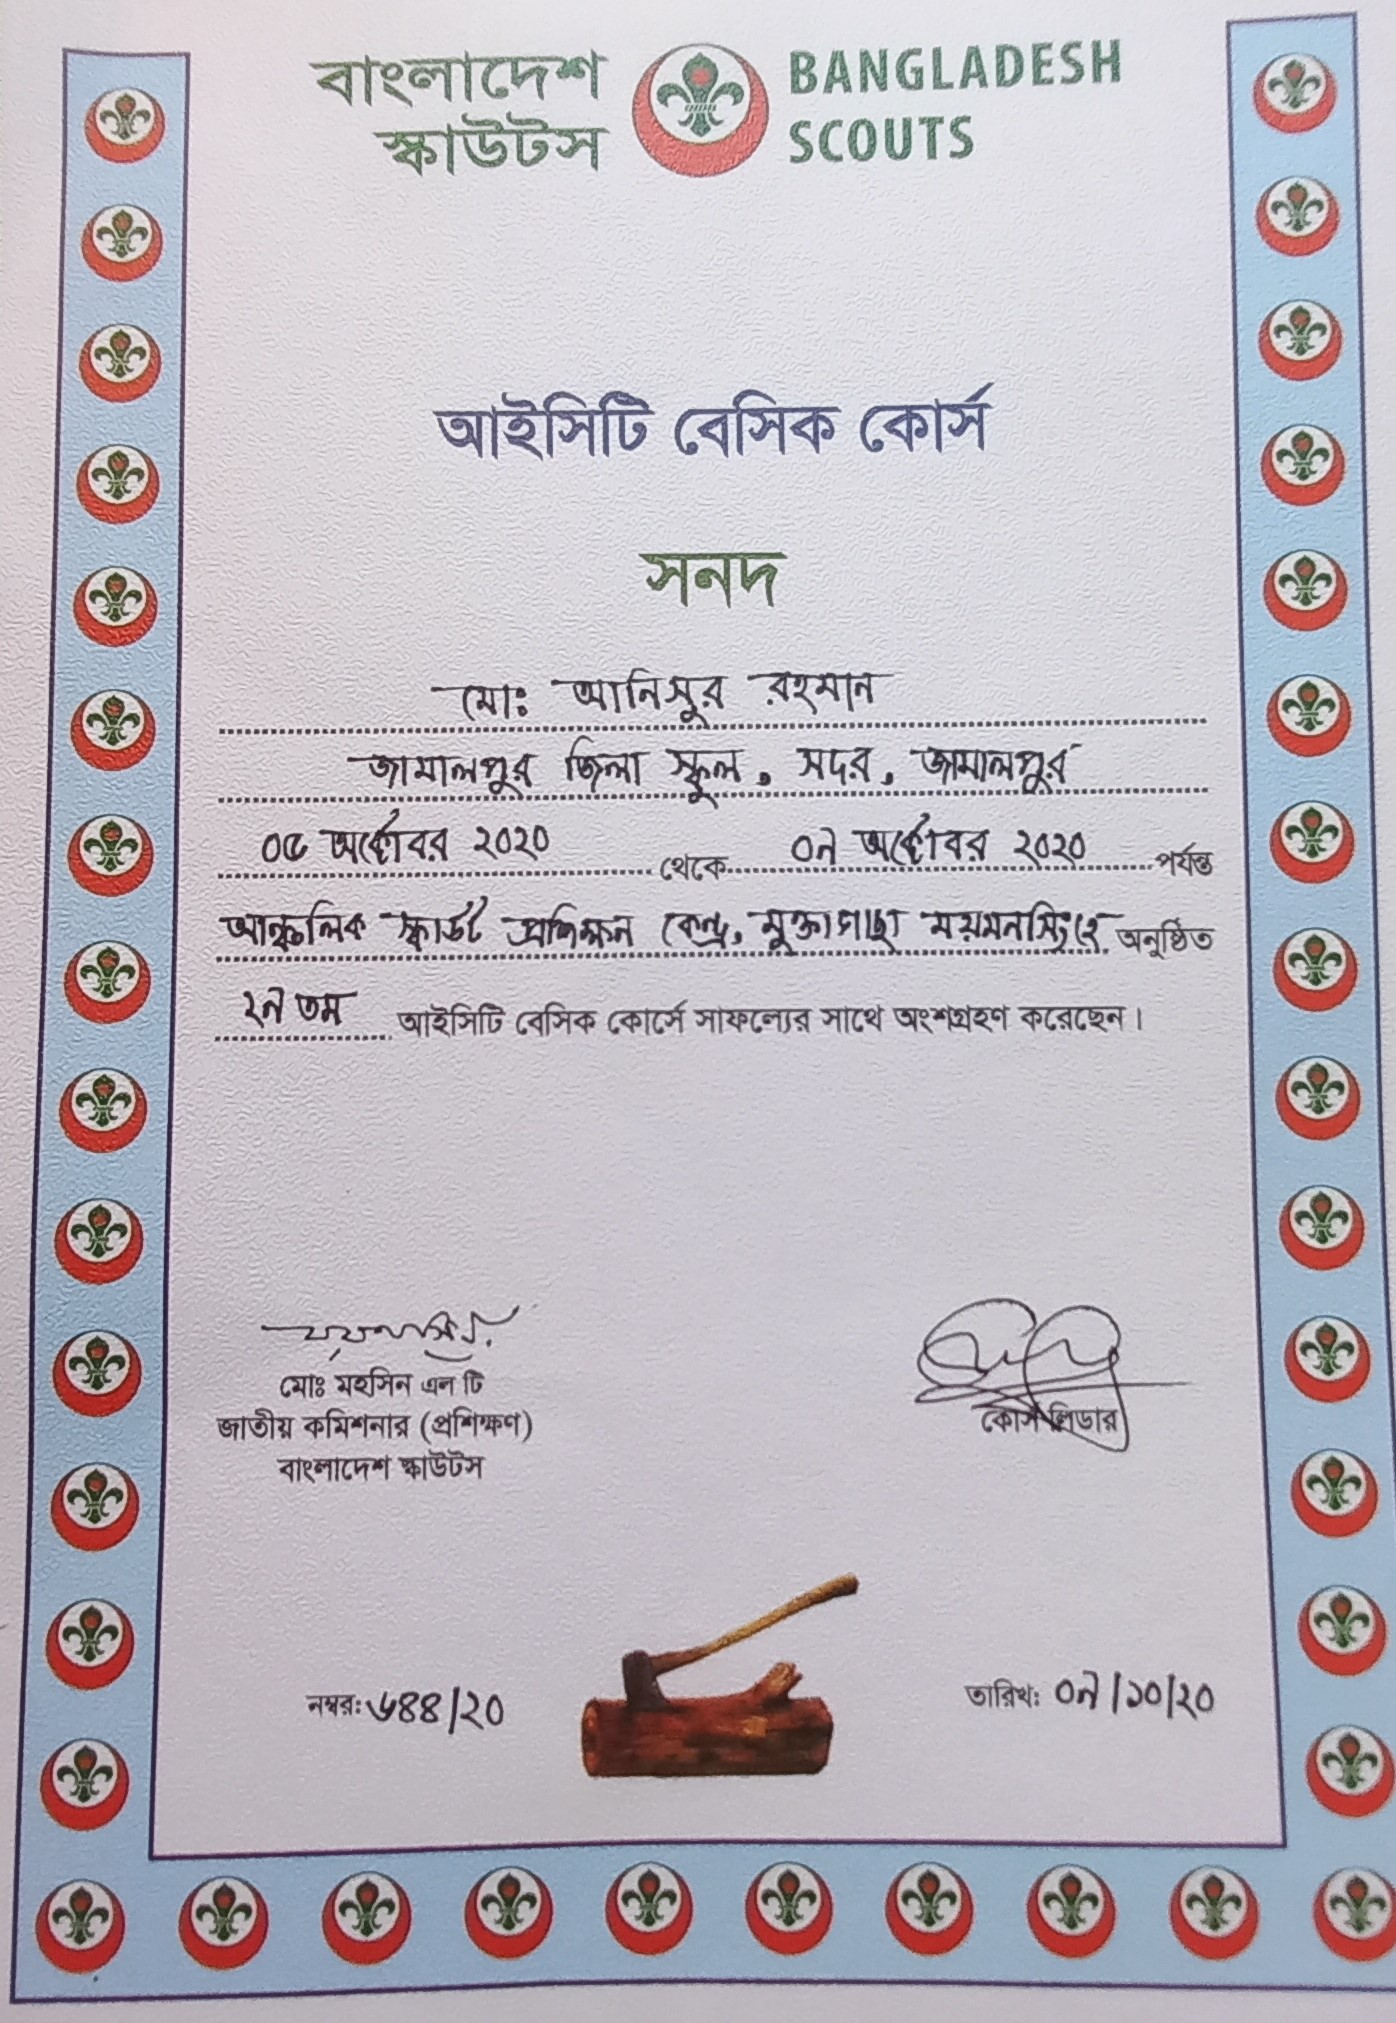 বাংলাদেশ স্কাউটস
BANGLADESH SCOUTS
আইসিটি বেসিক কোর্স
সনদ
মোঃ আনিসুর রহমান
জামালপুর জিলা স্কুল, সদর, জামালপুর
০৫ অক্টোবর ২০২০ থেকে ০৭ অক্টোবর ২০২০ পর্যন্ত
আঞ্চলিক স্কাউট প্রশিক্ষন কেন্দ্র, মুক্তাগাছা ময়মনসিংহে অনুষ্ঠিত
২৭ তম আইসিটি বেসিক কোর্সে সাফল্যের সাথে অংশগ্রহণ করেছেন।
মোঃ মহসিন এল টি
জাতীয় কমিশনার (প্রশিক্ষণ)
বাংলাদেশ স্কাউটস
কোর্স লিডার
নম্বর: ৬৪৪/২০
তারিখ: ০৭/১০/২০